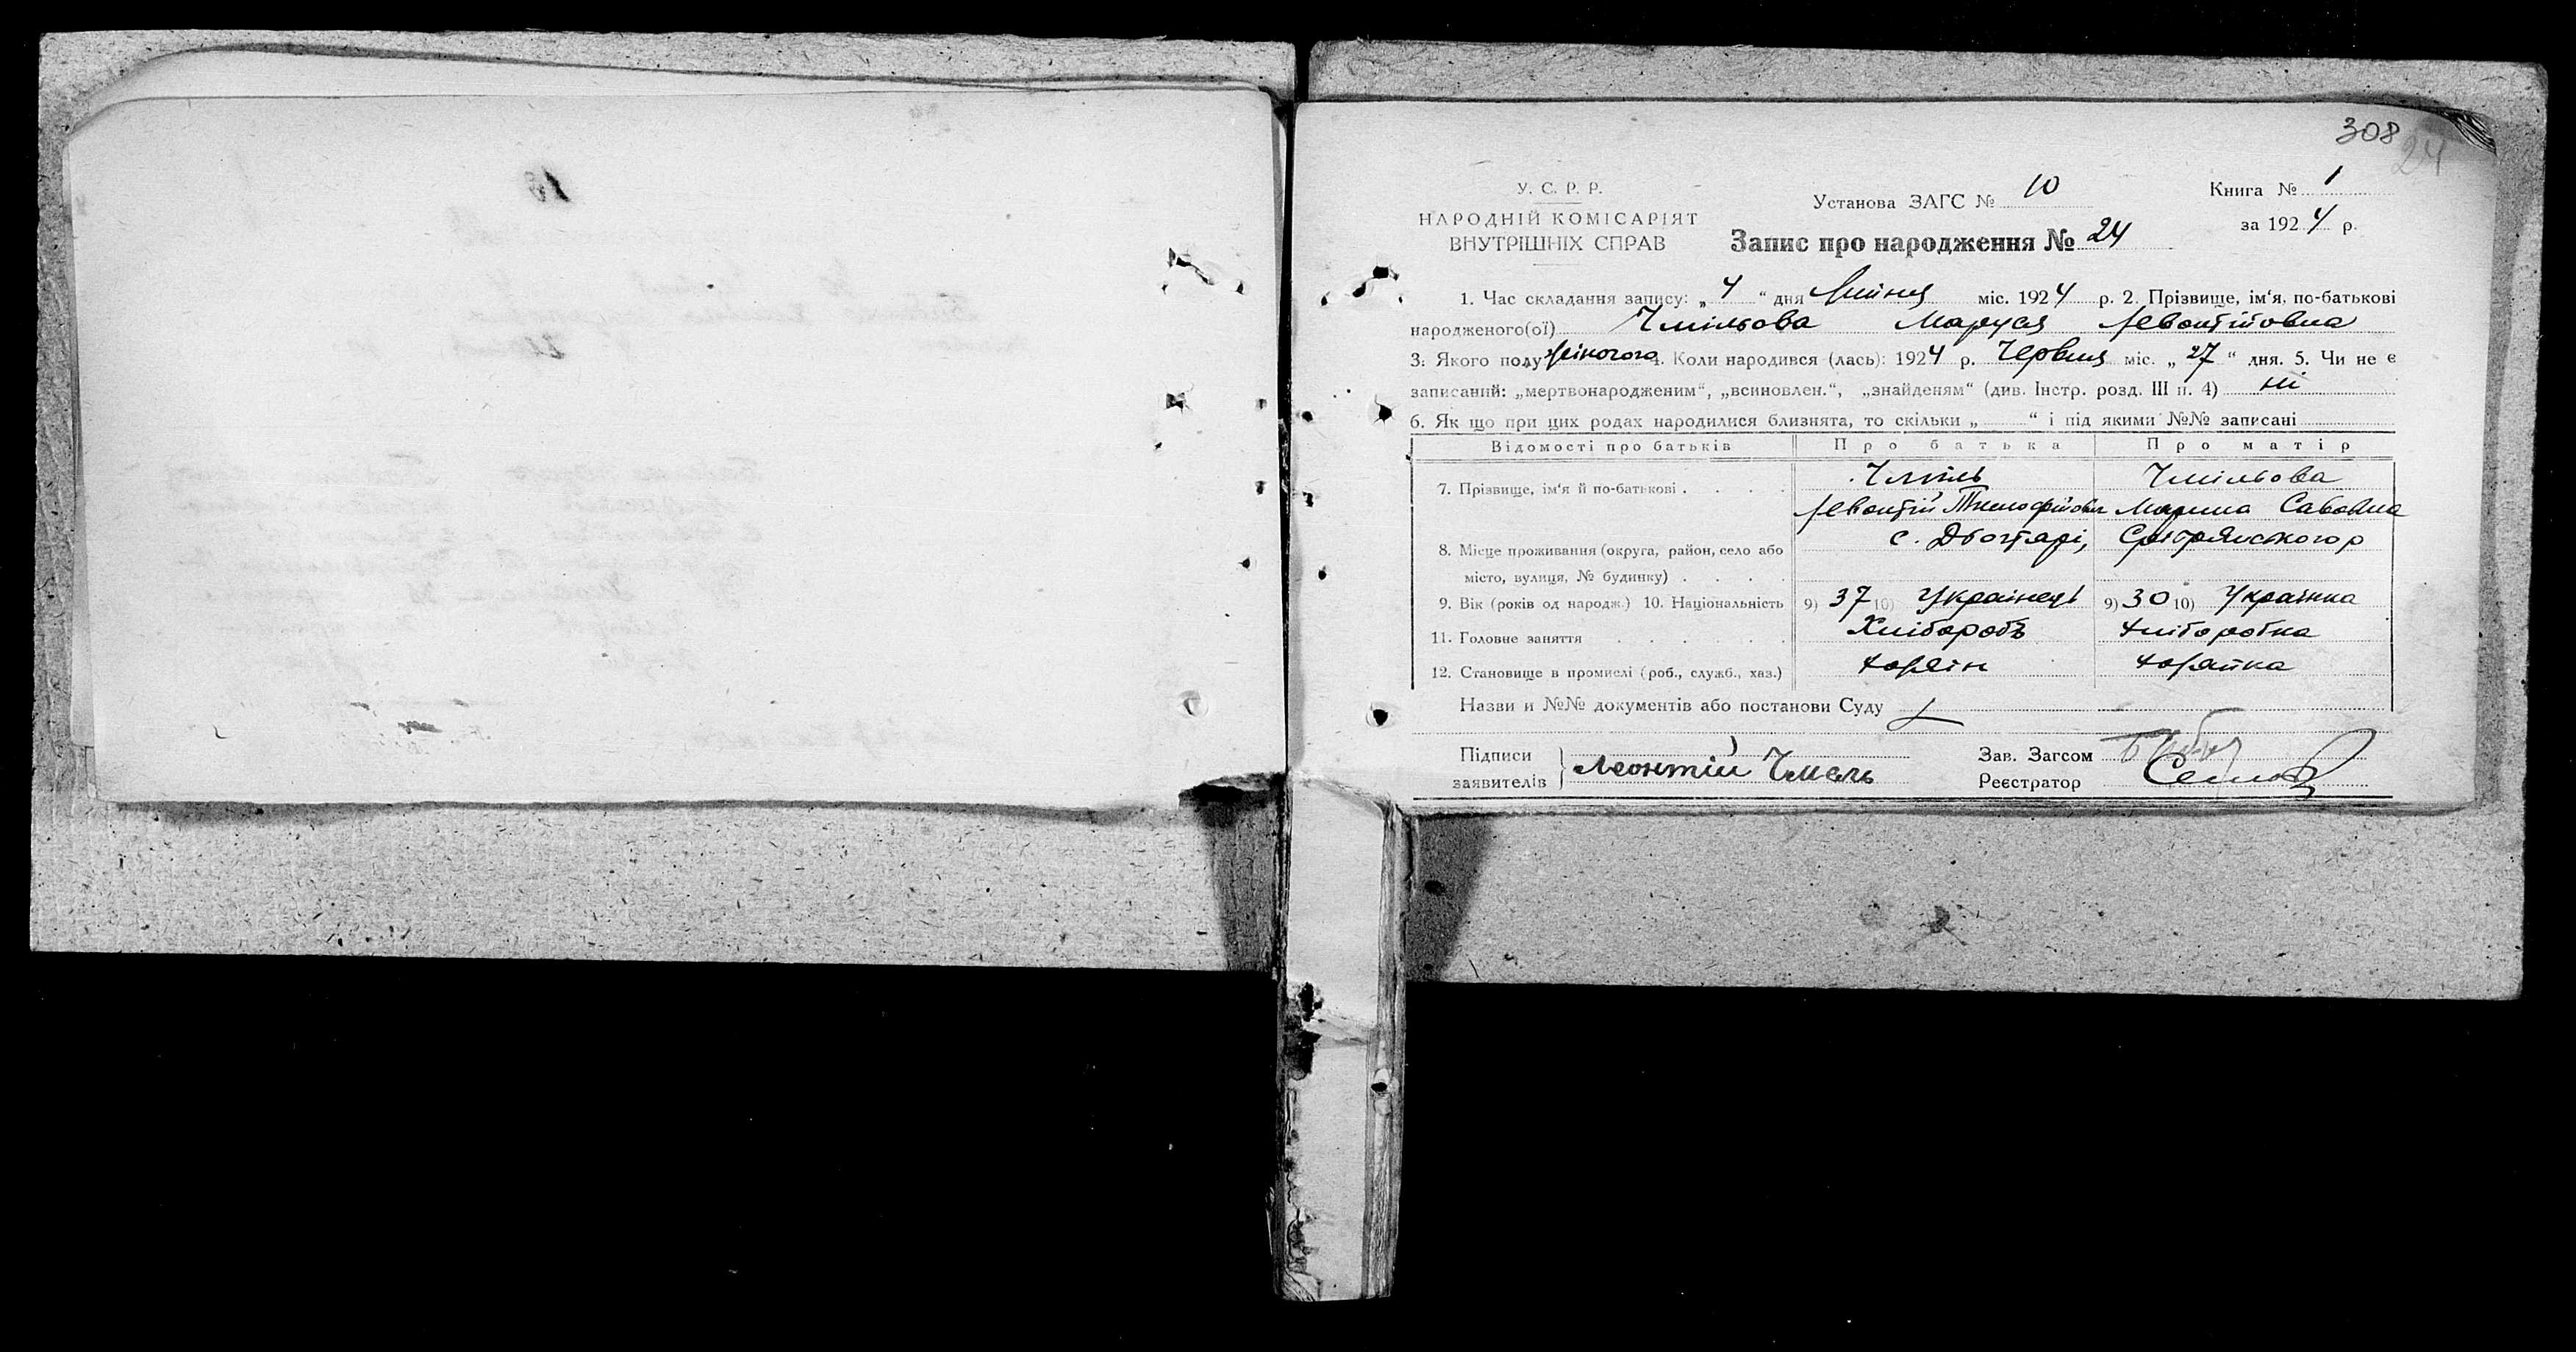 308
24
У. С. Р. Р.
НАРОДНІЙ КОМІСАРІЯТ
ВНУТРІШНІХ СПРАВ
Установа ЗАГС № 10
Книга № 1
за 1924 р.
Запис про народження № 24
1. Час складання запису: „4“ дня Липня міс. 1924 р. 2. Прізвище, ім‘я, по-батькові
народженого(ої) Чмільова Маруся Левонтійовна
3. Якого полу жіночого 4. Коли народився (лась): 1924 р. Червня міс. „27“ дня. 5. Чи не є
записаний: „мертвонародженим“, „всиновлен.“, „знайденям“ (див. Інстр. розд. III п. 4) ні
6. Як що при цих родах народилися близнята, то скільки „ “ і під якими №№ записані
Відомості про батьків Про батька Про матір
7. Прізвище, ім‘я й по-батькові . . . . Чміль Чмільова
Левонтій Марина Савовна
8. Місце проживання (округа, район, село або с. Дігтярі, Срібрянського р
місто, вулиця, № будинку) . . . .
9. Вік (років од народж.) 10. Національність 9) 37 10) Українець 9) 30 10) Українка
11. Головне заняття . . . . Хлібороб хліборобка
12. Становище в промислі (роб., служб., хаз.) хазяін хазяйка
Назви и №№ документів або постанови Суду
Підписи
заявителів Леонтій Чмель
Зав. Загсом
Реєстратор